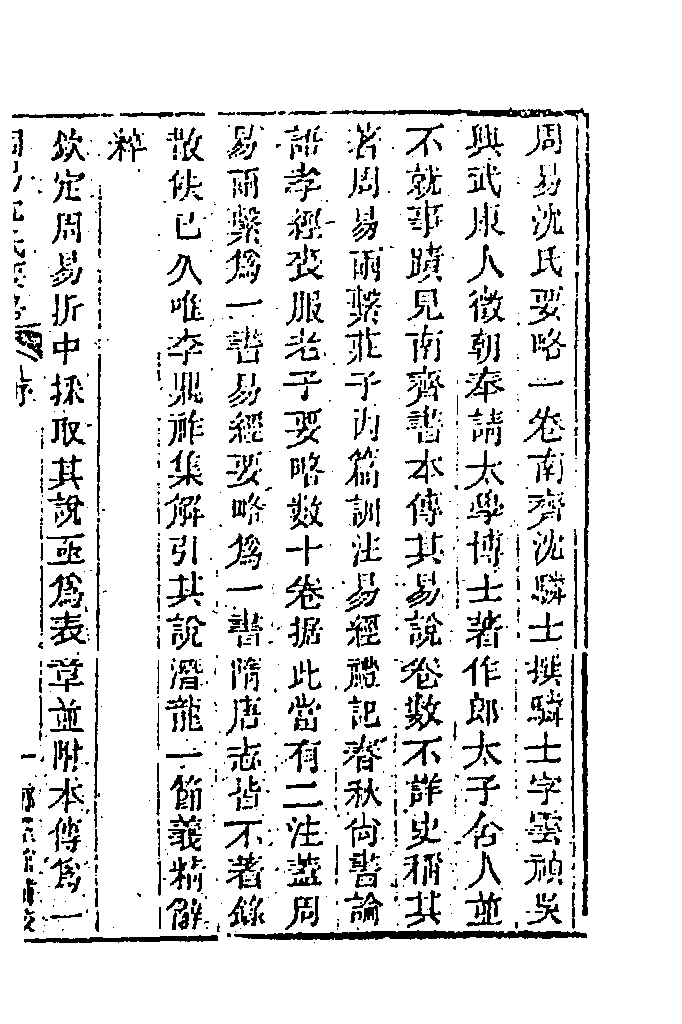 周易沈氏要略一卷南齊沈驎士撰驎士字雲禎吳
興武康人徵朝奉請太學博士著作郎太子舍人並
不就事蹟見南齊書本傳其易說卷數不詳史稱其
著周易兩繫莊子內篇訓注易經禮記春秋尙書論
語孝經喪服老子要略數十卷据此當有二注蓋周
易兩繫爲一書易經要略爲一書隋唐志皆不著錄
散佚已久唯李鼎祚集解引其說潛龍一節義精解
粹
欽定周易折中採取其說亟爲表章並附本傳爲一
周易沈氏要略 序 一